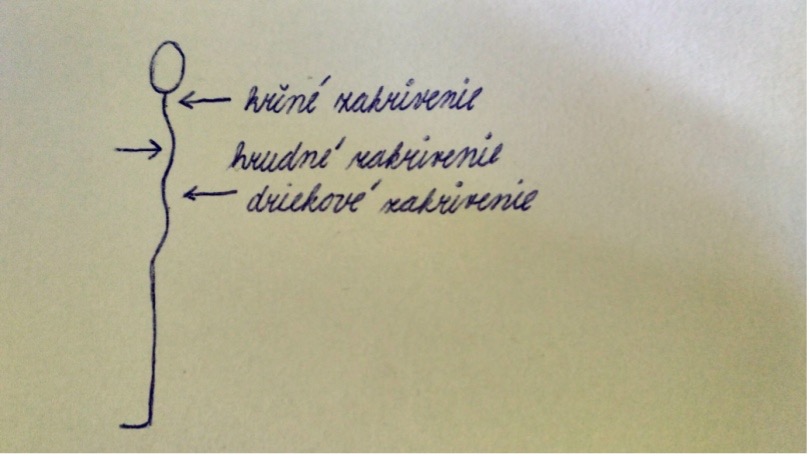 kŕčné zakrivenie
hrudné zakrivenie
driekové zakrivenie